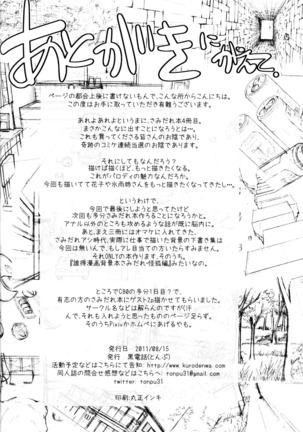 あとがきにかえて、
ページの都合上後に書けないもんで、こんな所からこんにちは。
この度はお手に取っていただき有難うございます。
あれよあれよというまに、さみだれ本4冊目。
まさかこんなに出すことになろうとは…。
これも買ってくださる皆さんのお陰であり、
奇跡のコミケ連続当選のお陰であり。
それにしてもなんだろう?
描けば描くほど、もっと描きたくなる。
これがパロディの魅力なんだろか。
今回も描いてて花子や水雨姉さんをもっと描きたくなってきたし…。
というわけで、
今回で最後にしようと思ってたけど
次回も多分さみだれ本作ることになろうかと。
アナル以外のところも攻めるような話が既に脳内に。
あと、まえ三冊にはオマケに入れてた、
さみだれアシ時代、実際に仕事で描いた背景の下書き集は
今回は無いんで、もしアレ目当ての方いたらすみません。
それONLYの本作ります、そのうち。
ところでC80の多分1日目?で、
有志の方のさみだれ本にゲスト2p描かせてもらいました。
サークル名などは解らんのですが(汗
んで、それも入れようと思ったもののページ足らず。
そのうちPixivかホムペにあげるやも。
発行日 2011/08/15
発行 黒電話(とんぷ)
活動予定などはこちらにて告知: http://www.kurodenwa.com
同人誌の問合せ感想などはこちらへ: tonpu31@gmail.com
twitter: tonpu31
印刷:丸正インキ